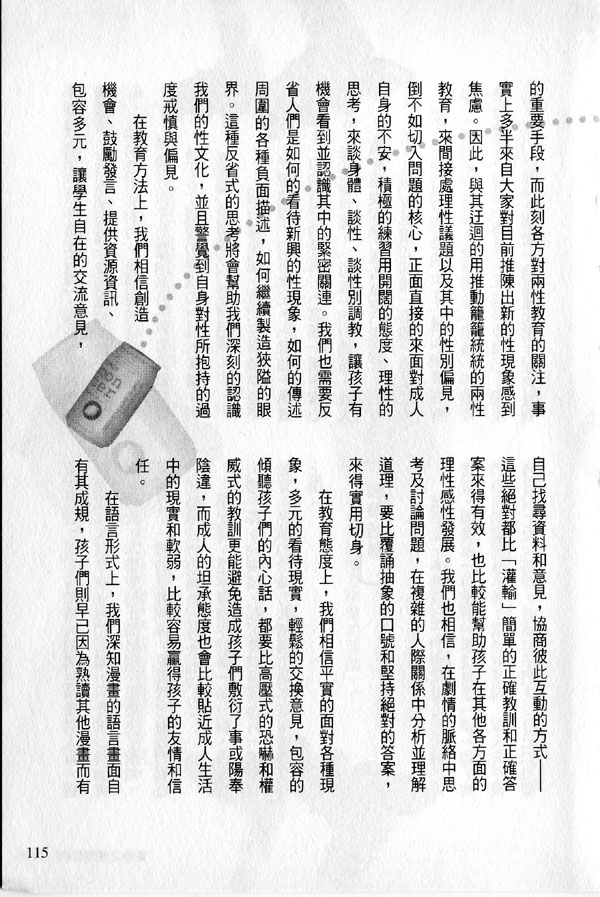 的重要手段，而此刻各方對兩性教育的關注，事
實上多半來自大家對目前推陳出新的性現象感到
焦慮。因此，與其迂迴的用推動籠籠統統的兩性
教育，來間接處理性議題以及其中的性別偏見，
倒不如切入問題的核心，正面直接的來面對成人
自身的不安，積極的練習用開闊的態度、理性的
思考，來談身體、談性、談性別調教，讓孩子有
機會看到並認識其中的緊密關連。我們也需要反
省人們是如何的看待新興的性現象，如何的傳述
周圍的各種負面描述，如何繼續製造狹隘的眼
界。這種反省式的思考將會幫助我們深刻的認識
我們的性文化，並且警覺到自身對性所抱持的過
度戒慎與偏見。
在教育方法上，我們相信創造
機會、鼓勵發言、提供資源資訊、
包容多元，讓學生自在的交流意見，
自己找尋資料和意見，協商彼此互動的方式——
這些絕對都比「灌輸」簡單的正確教訓和正確答
案來得有效，也比較能幫助孩子在其他各方面的
理性感性發展。我們也相信，在劇情的脈絡中思
考及討論問題，在複雜的人際關係中分析並理解
道理，要比覆誦抽象的口號和堅持絕對的答案，
來得實用切身。
在教育態度上，我們相信平實的面對各種現
象，多元的看待現實，輕鬆的交換意見，包容的
傾聽孩子們的內心話，都要比高壓式的恐嚇和權
威式的教訓更能避免造成孩子們敷衍了事或陽奉
陰違，而成人的坦承態度也會比較貼近成人生活
中的現實和軟弱，比較容易贏得孩子的友情和信
任。
在語言形式上，我們深知漫畫的語言畫面自
有其成規，孩子們則早已因為熟讀其他漫畫而有
115